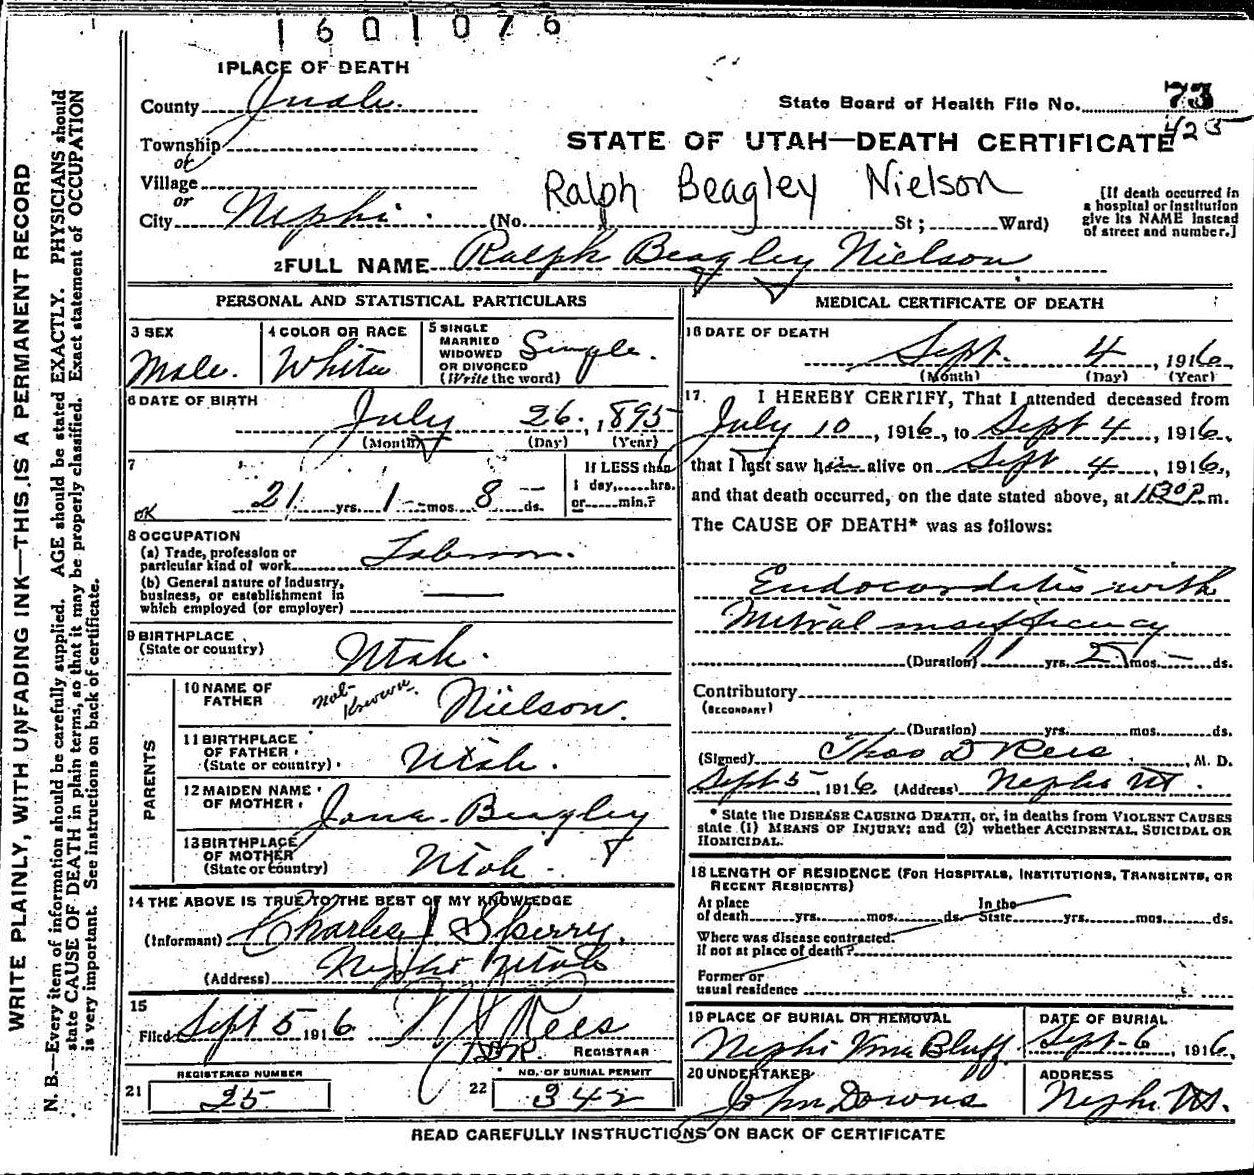 1601076
1 PLACE OF DEATH
County Juab.
State Board of Health File No. 73
425
Township
or
STATE OF UTAH—DEATH CERTIFICATE
Village
or
Ralph Beagley Nielson
City Nephi. (No. St; Ward)
[If death occurred in a hospital or institution give its NAME instead of street and number.]
2 FULL NAME Ralph Beagley Nielson
PERSONAL AND STATISTICAL PARTICULARS
3 SEX Male.
4 COLOR OR RACE White
5 SINGLE MARRIED WIDOWED OR DIVORCED (Write the word) Single.
6 DATE OF BIRTH
July 26, 1895
(Month) (Day) (Year)
7 21 yrs. 1 mos. 8 ds.
OK
If LESS than 1 day, hrs. or min.?
8 OCCUPATION
(a) Trade, profession or particular kind of work
(b) General nature of industry, business, or establishment in which employed (or employer)
9 BIRTHPLACE (State or country) Utah.
PARENTS
10 NAME OF FATHER Not Known Nielson.
11 BIRTHPLACE OF FATHER (State or country) Utah.
12 MAIDEN NAME OF MOTHER Beagley
13 BIRTHPLACE OF MOTHER (State or country) Utah.
14 THE ABOVE IS TRUE TO THE BEST OF MY KNOWLEDGE
(Informant) Charles Sperry,
(Address) Nephi Utah
15
Filed Sept 5 1916 Rees
REGISTRAR
21 REGISTERED NUMBER 25
22 NO. OF BURIAL PERMIT 342
MEDICAL CERTIFICATE OF DEATH
16 DATE OF DEATH
Sept. 4, 1916
(Month) (Day) (Year)
17. I HEREBY CERTIFY, That I attended deceased from
July 10, 1916, to Sept 4, 1916,
that I last saw him alive on Sept 4, 1916,
and that death occurred, on the date stated above, at 1130P m.
The CAUSE OF DEATH* was as follows:
Endocarditis with
Mitral insufficiency
(Duration) yrs. 2 mos. ds.
Contributory
(SECONDARY)
(Duration) yrs. mos. ds.
(Signed) Thos D Rees, M. D.
Sept 5, 1916 (Address) Nephi Ut.
* State the DISEASE CAUSING DEATH, or, in deaths from VIOLENT CAUSES
state (1) MEANS OF INJURY; and (2) whether ACCIDENTAL, SUICIDAL OR
HOMICIDAL.
18 LENGTH OF RESIDENCE (FOR HOSPITALS, INSTITUTIONS, TRANSIENTS, OR
RECENT RESIDENTS)
At place of death yrs. mos. ds. In the State yrs. mos. ds.
Where was disease contracted.
if not at place of death?
Former or
usual residence
19 PLACE OF BURIAL OR REMOVAL
Nephi Vine Bluff
DATE OF BURIAL
Sept-6, 1916,
20 UNDERTAKER
John Downs
ADDRESS
Nephi Ut.
READ CAREFULLY INSTRUCTIONS ON BACK OF CERTIFICATE
WRITE PLAINLY, WITH UNFADING INK—THIS IS A PERMANENT RECORD
N. B.—Every item of information should be carefully supplied. AGE should be stated EXACTLY. PHYSICIANS should
state CAUSE OF DEATH in plain terms, so that it may be properly classified. Exact statement of OCCUPATION
is very important. See instructions on back of certificate.